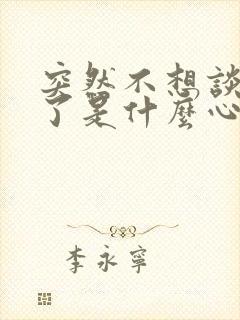 突然不想談
了是什麼心
李永寧